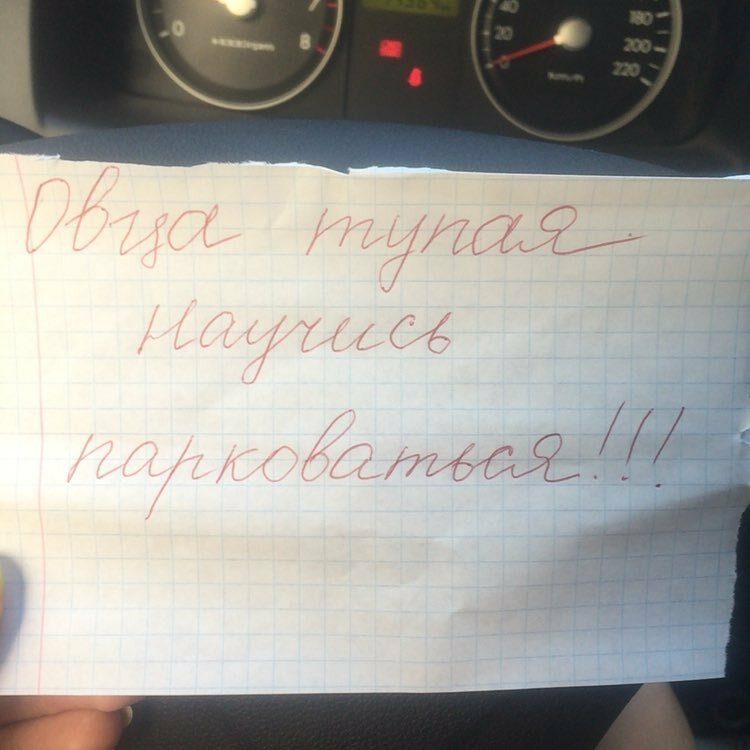 0 7 8
40 20 0 180 200 220
km/h
Овца тупая
научись
парковаться!!!